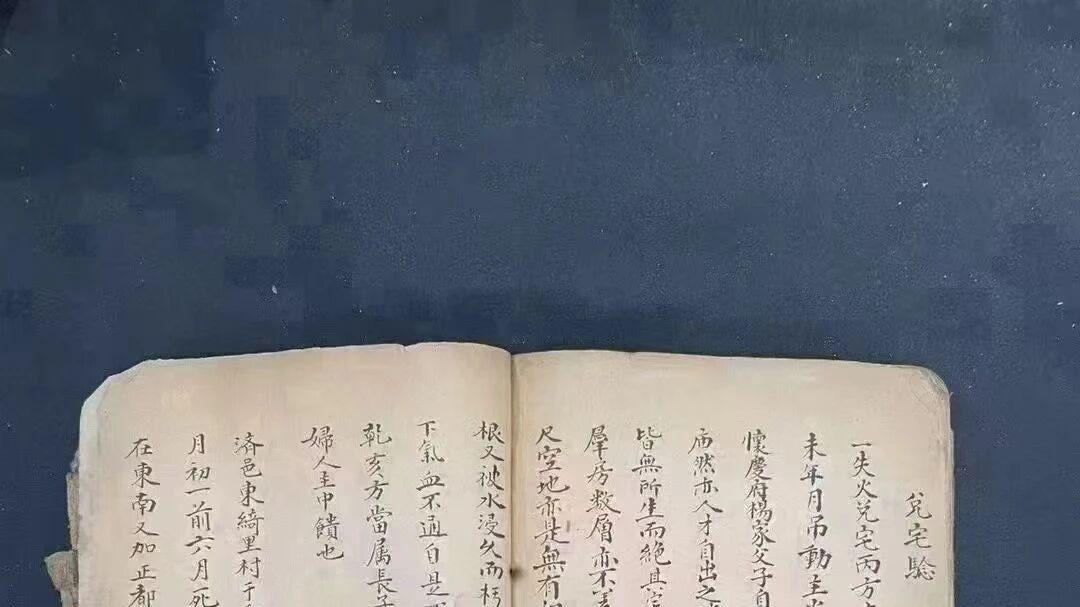 兌宅驗
一失火兌宅丙方
未年月吊動主
懷慶府楊家父子自
庙然亦人才自出之
皆無所生而絕其宅
犀房数層亦不
尺空地亦是無有
根又被水浸久而朽
下氣血不通自是
乾亥方當属長子
婦人主中饋也
濟邑東綺里村于
月初一前六月死
在東南又加正都